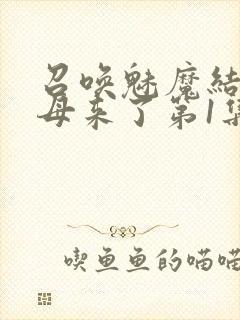 召唤魅魔结
母来了第1集
喫鱼鱼的喵喵